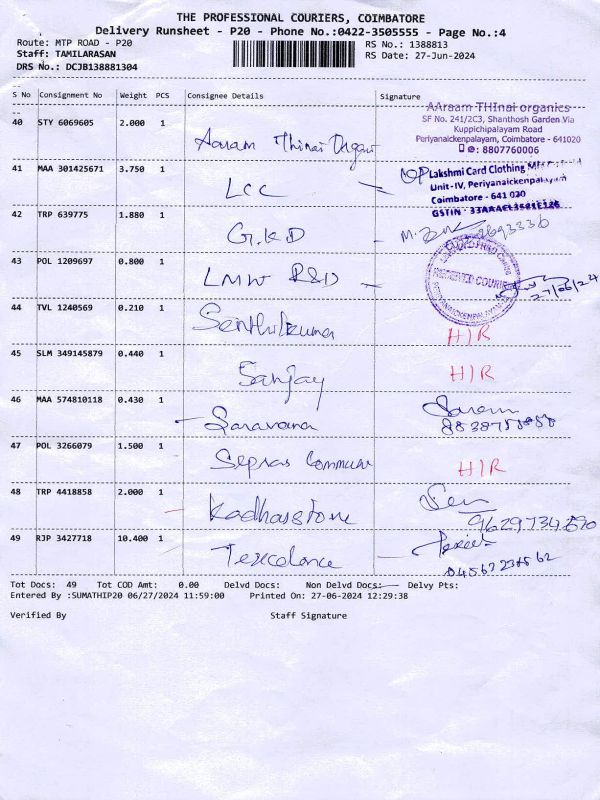 THE PROFESSIONAL COURIERS, COIMBATORE
Delivery Runsheet - P20 - Phone No.:0422-3505555 - Page No.:4
Route: MTP ROAD - P20
RS No.: 1388813
Staff: TAMILARASAN
RS Date: 27-Jun-2024
DRS No.: DCJB138881304
S No Consignment No Weight PCS Consignee Details Signature
AAraam THInai organics
SF No. 241/2C3, Shanthosh Garden Via
Kuppichipalayam Road
Periyanaickenpalayam, Coimbatore - 641020
: 8807760006
40 STY 6069605 2.000 1 Aaram Thinai Organ
41 MAA 301425671 3.750 1 LCC
Lakshmi Card Clothing
Unit-IV, Periyanaickenpalayam
Coimbatore - 641 020
GSTIN -
42 TRP 639775 1.880 1 G.K.D
43 POL 1209697 0.800 1 LMW R&D
RECEIVED COURIER
27/06/24
44 TVL 1240569 0.210 1 Senthilkumar H/R
45 SLM 349145879 0.440 1 Sanjay H/R
46 MAA 574810118 0.430 1 Saravana
47 POL 3266079 1.500 1 H/R
48 TRP 4418858 2.000 1 Kadhaistone
49 RJP 3427718 10.400 1
Tot Docs: 49 Tot COD Amt: 0.00 Delvd Docs: Non Delvd Docs: Delvy Pts:
Entered By :SUMATHIP20 06/27/2024 11:59:00 Printed On: 27-06-2024 12:29:38
Verified By Staff Signature